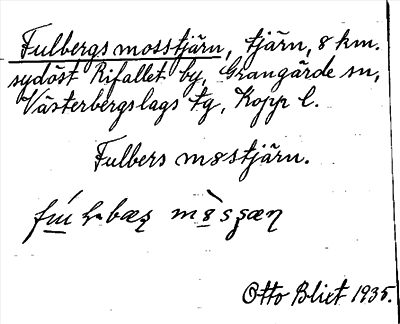 Fulbergsmosstjärn, tjärn, 8 km.
sydöst Rifallet by, Grangärde sn,
Västerbergslags tg, Kopp l.
Fulbers møstjärn.
Otto Blixt 1935.